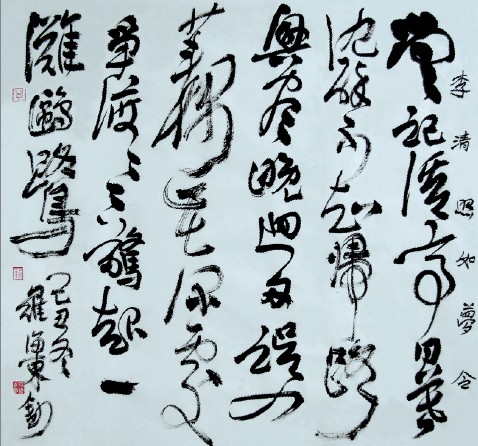 李清照如夢令
常記溪亭日暮
沈醉不知歸路
興盡晚迴舟誤入
藕花深處
爭渡〻〻驚起一
灘鷗鷺
己丑冬